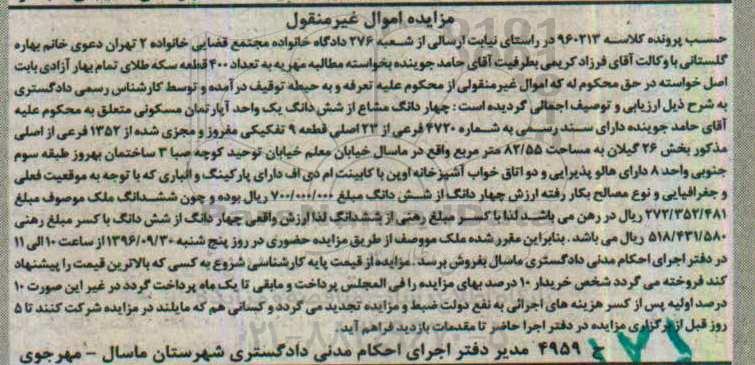 مزایده اموال غیرمنقول
حسب پرونده کلاسه ۹۶۰۲۱۳ در راستای نیابت ارسالی از شعبه ۲۷۶ دادگاه خانواده مجتمع قضایی خانواده ۲ تهران دعوی خانم بهاره
گلستانی با وکالت آقای فرزاد کریمی بطرفیت آقای حامد جوینده بخواسته مطالبه مهریه به تعداد ۴۰۰ قطعه سکه طلای تمام بهار آزادی بابت
اصل خواسته در حق محکوم له که اموال غیرمنقولی از محکوم علیه تعرفه و به حیطه توقیف درآمده و توسط کارشناس رسمی دادگستری
به شرح ذیل ارزیابی و توصیف اجمالی گردیده است: چهار دانگ مشاع از شش دانگ یک واحد آپارتمان مسکونی متعلق به محکوم علیه
آقای حامد جوینده دارای سند رسمی به شماره ۴۷۲۰ فرعی از ۲۳ اصلی قطعه ۹ تفکیکی مفروز و مجزی شده از ۱۳۵۲ فرعی از اصلی
مذکور بخش ۲۶ گیلان به مساحت ۸۲/۵۵ متر مربع واقع در ماسال خیابان معلم خیابان توحید کوچه صبا ۳ ساختمان بهروز طبقه سوم
جنوبی واحد ۸ دارای هالو پذیرایی و دو اتاق خواب آشپزخانه اوپن با کابینت ام دی اف دارای پارکینگ و انباری که با توجه به موقعیت فعلی
و جغرافیایی و نوع مصالح بکار رفته ارزش چهار دانگ از شش دانگ مبلغ ۷۰۰/۰۰۰/۰۰۰ ریال بوده و چون ششدانگ ملک موصوف مبلغ
۲۷۲/۳۵۲/۴۸۱ ریال در رهن می باشد لذا با کسر مبلغ رهنی از ششدانگ لذا ارزش واقعی چهار دانگ از شش دانگ با کسر مبلغ رهنی
۵۱۸/۴۳۱/۵۸۰ ریال می باشد. بنابراین مقرر شده ملک مووصف از طریق مزایده حضوری در روز پنج شنبه ۱۳۹۶/۰۹/۳۰ از ساعت ۱۰ الی ۱۱
در دفتر اجرای احکام مدنی دادگستری ماسال بفروش برسد. مزایده از قیمت پایه کارشناسی شروع به کسی که بالاترین قیمت را پیشنهاد
کند فروخته می گردد شخص خریدار ۱۰ درصد بهای مزایده را فی المجلس پرداخت و مابقی تا یک ماه پرداخت گردد در غیر این صورت ۱۰
درصد اولیه پس از کسر هزینه های اجرائی به نفع دولت ضبط و مزایده تجدید می گردد و کسانی هم که مایلند در مزایده شرکت کنند تا ۵
روز قبل از برگزاری مزایده در دفتر اجرا حاضر تا مقدمات بازدید فراهم آید.
۴۹۵۹ مدیر دفتر اجرای احکام مدنی دادگستری شهرستان ماسال - مهرجوی